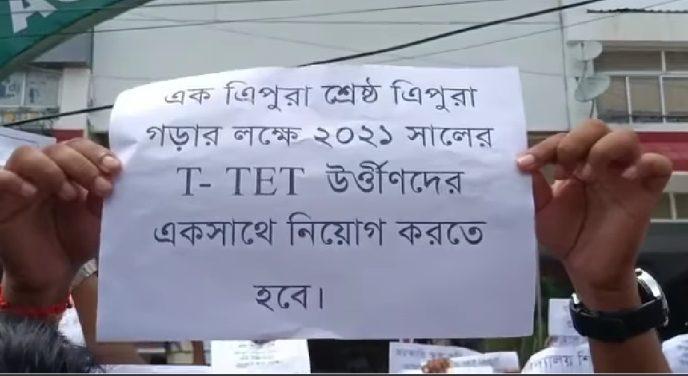 এক ত্রিপুরা শ্রেষ্ঠ ত্রিপুরা
গড়ার লক্ষে ২০২১ সালের
T- TET উর্ত্তীণদের
একসাথে নিয়োগ করতে
হবে।